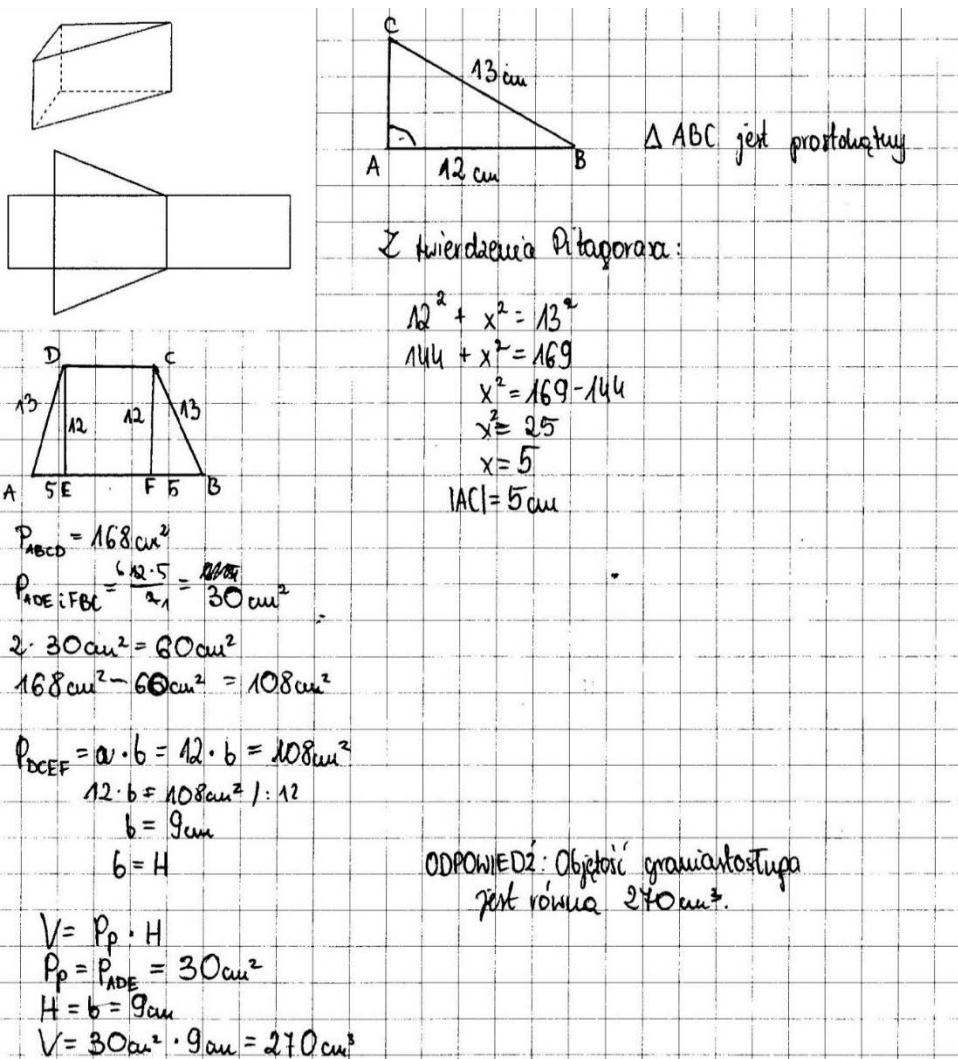 C
13 cm
A
12 cm
B
Δ ABC jest prostokątny
Z twierdzenia Pitagorasa:
12² + x² = 13²
144 + x² = 169
x² = 169 - 144
x² = 25
x = 5
|AC| = 5 cm
D
C
13
12
12
13
A
5
E
F
5
B
P_ABCD = 168 cm²
P_ADE i FBC = ⁶12·5/2₁ = 30 cm²
2 · 30 cm² = 60 cm²
168 cm² - 60 cm² = 108 cm²
P_DCEF = a · b = 12 · b = 108 cm²
12 · b = 108 cm² / : 12
b = 9 cm
b = H
V = Pp · H
Pp = P_ADE = 30 cm²
H = b = 9 cm
V = 30 cm² · 9 cm = 270 cm³
ODPOWIEDŹ: Objętość graniastosłupa
jest równa 270 cm³.